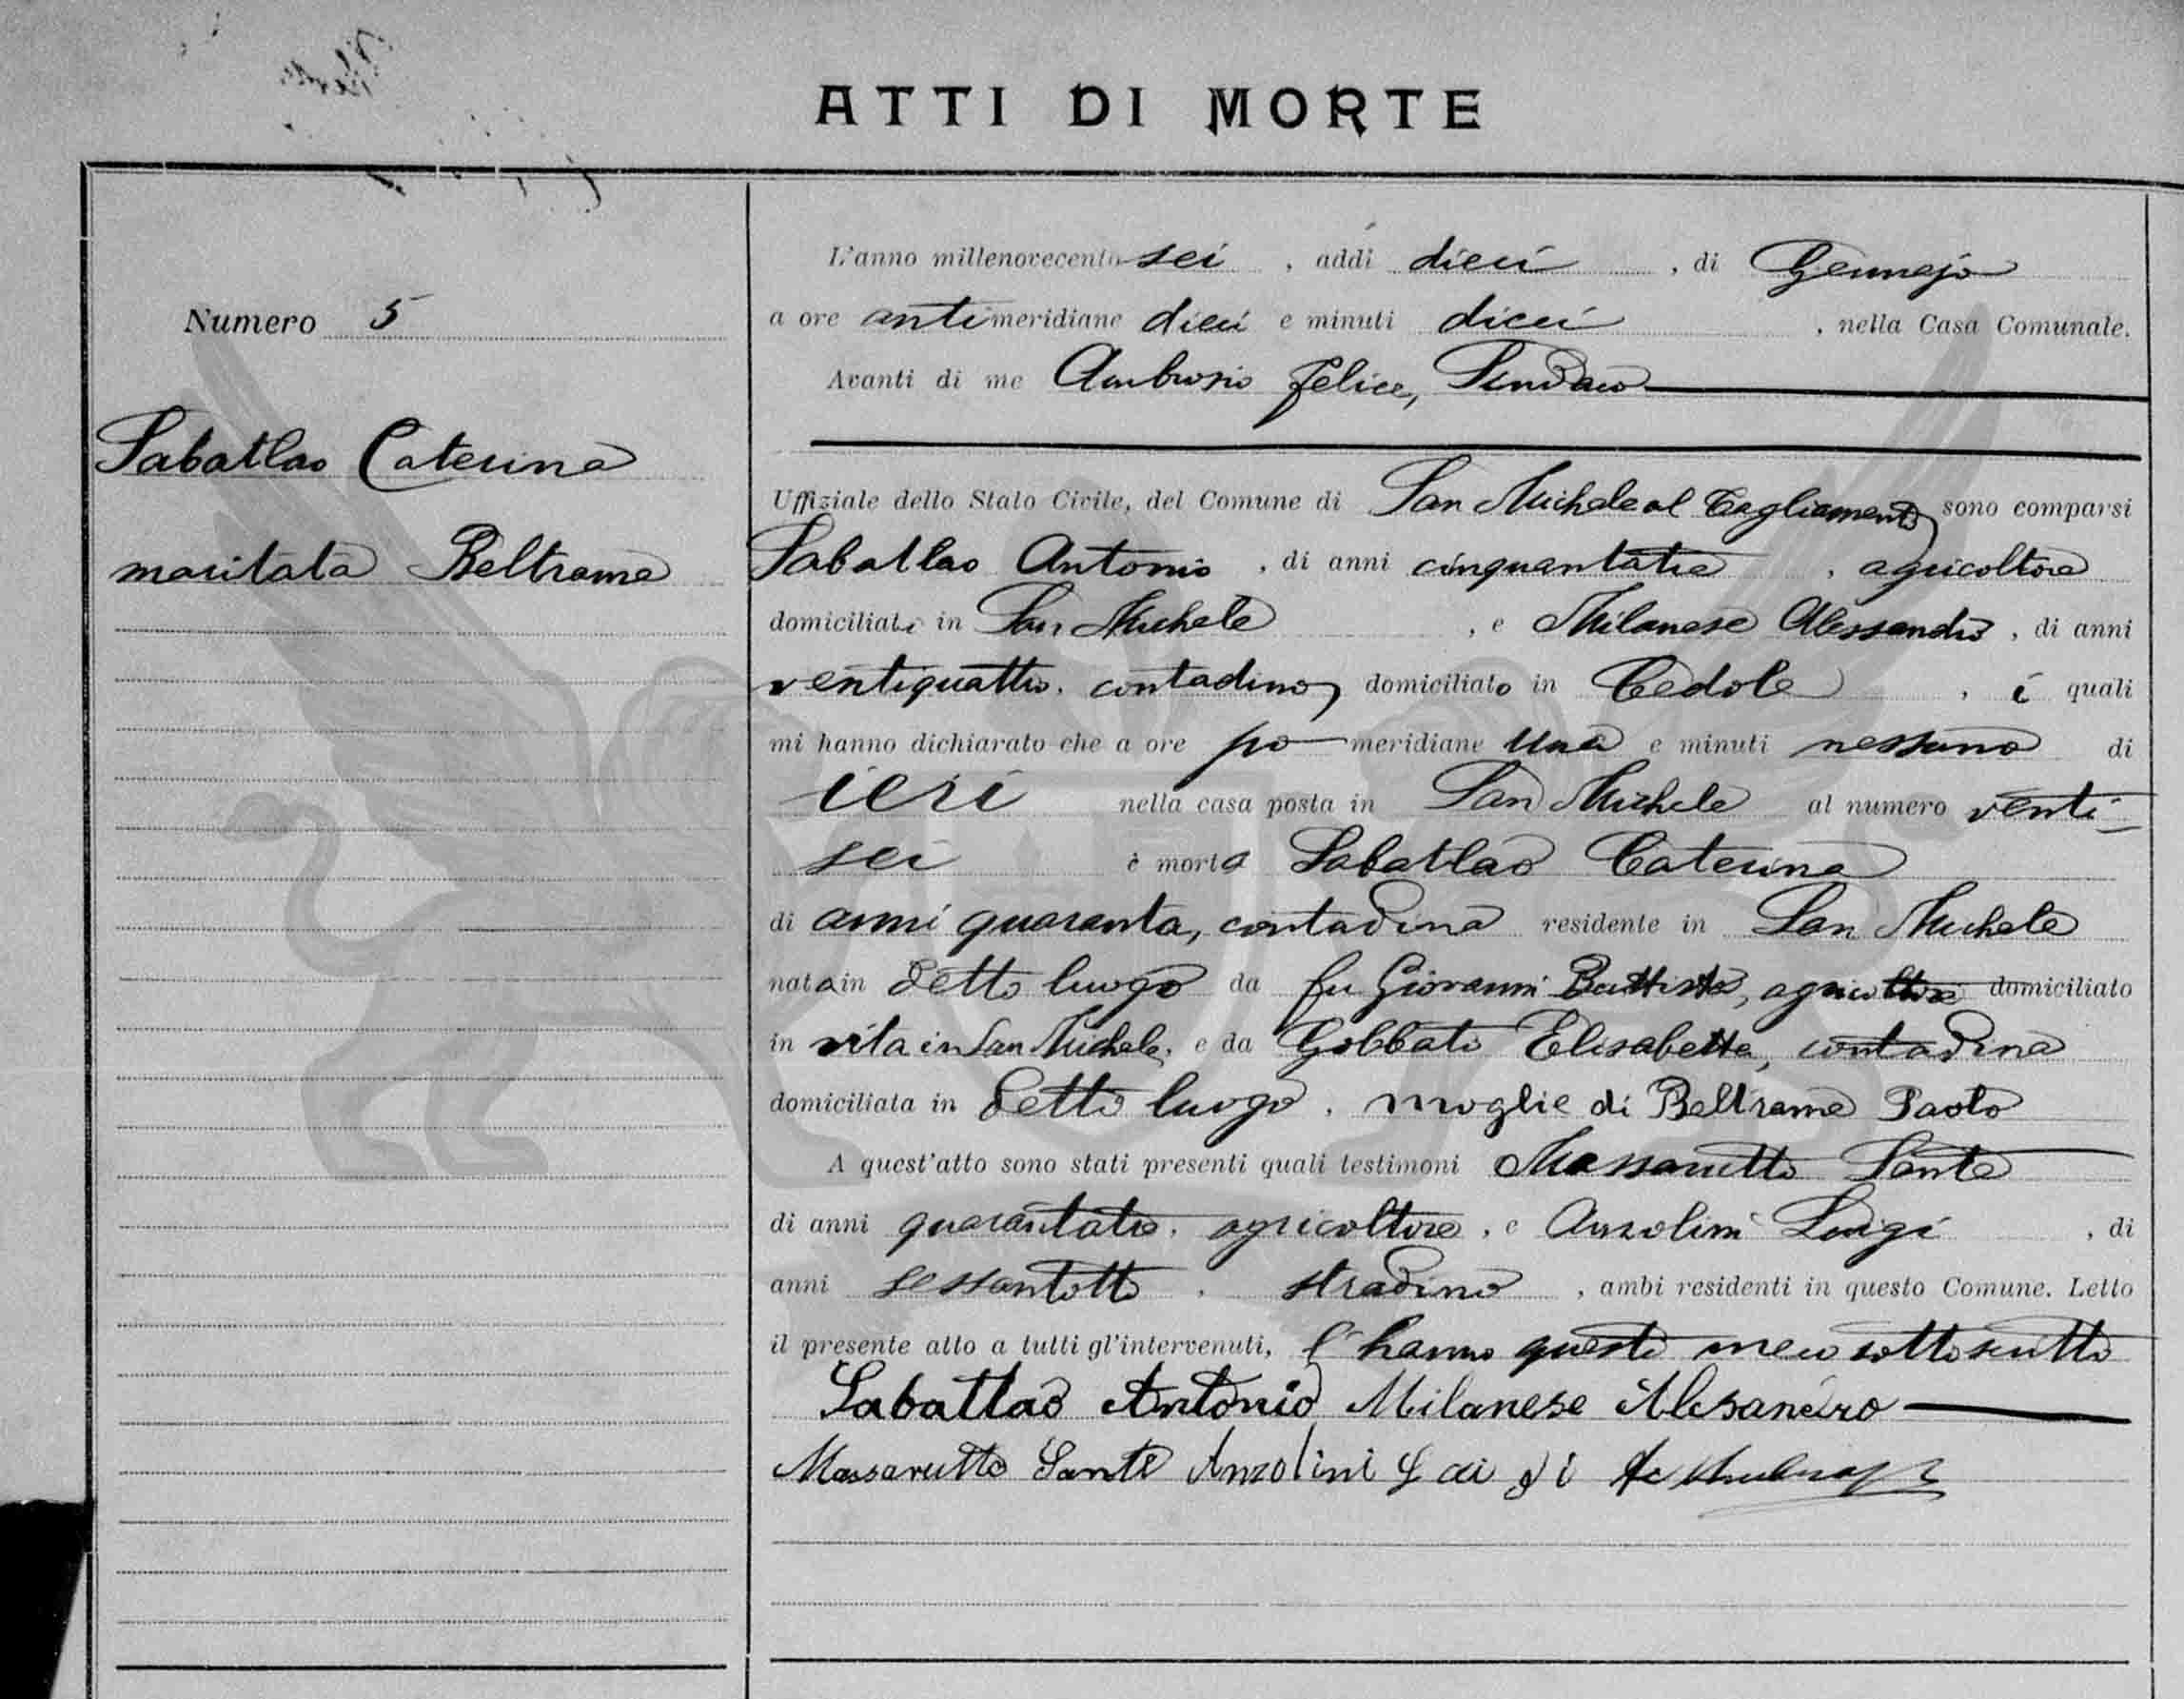 ATTI DI MORTE
Numero 5
Sabatlao Caterina
maritata Beltrame
L'anno millenovecento sei, addì dieci, di Gennajo
a ore antimeridiane dieci e minuti dieci, nella Casa Comunale.
Avanti di me Ambrosio Felice, Sindaco
Uffiziale dello Stato Civile, del Comune di San Michele al Tagliamento sono comparsi
Sabatlao Antonio, di anni cinquantatre, agricoltore
domiciliato in San Michele, e Milanese Alessandro, di anni
ventiquattro, contadino, domiciliato in Cedole, i quali
mi hanno dichiarato che a ore po meridiane una e minuti nessuno di
ieri nella casa posta in San Michele al numero venti-
sei è morta Sabatlao Caterina
di anni quaranta, contadina residente in San Michele
nata in detto luogo da fu Giovanni Battista, agricoltore domiciliato
in vita in San Michele, e da Gobbato Elisabetta, contadina
domiciliata in detto luogo, moglie di Beltrame Paolo
A quest'atto sono stati presenti quali testimoni Massarutto Sante
di anni quarantatre, agricoltore, e Anzolini Luigi, di
anni sessantotto, stradino, ambi residenti in questo Comune. Letto
il presente atto a tutti gl'intervenuti, l'hanno questi meco sottoscritto
Sabatlao Antonio Milanese Alesandro
Massarutto Sante Anzolini